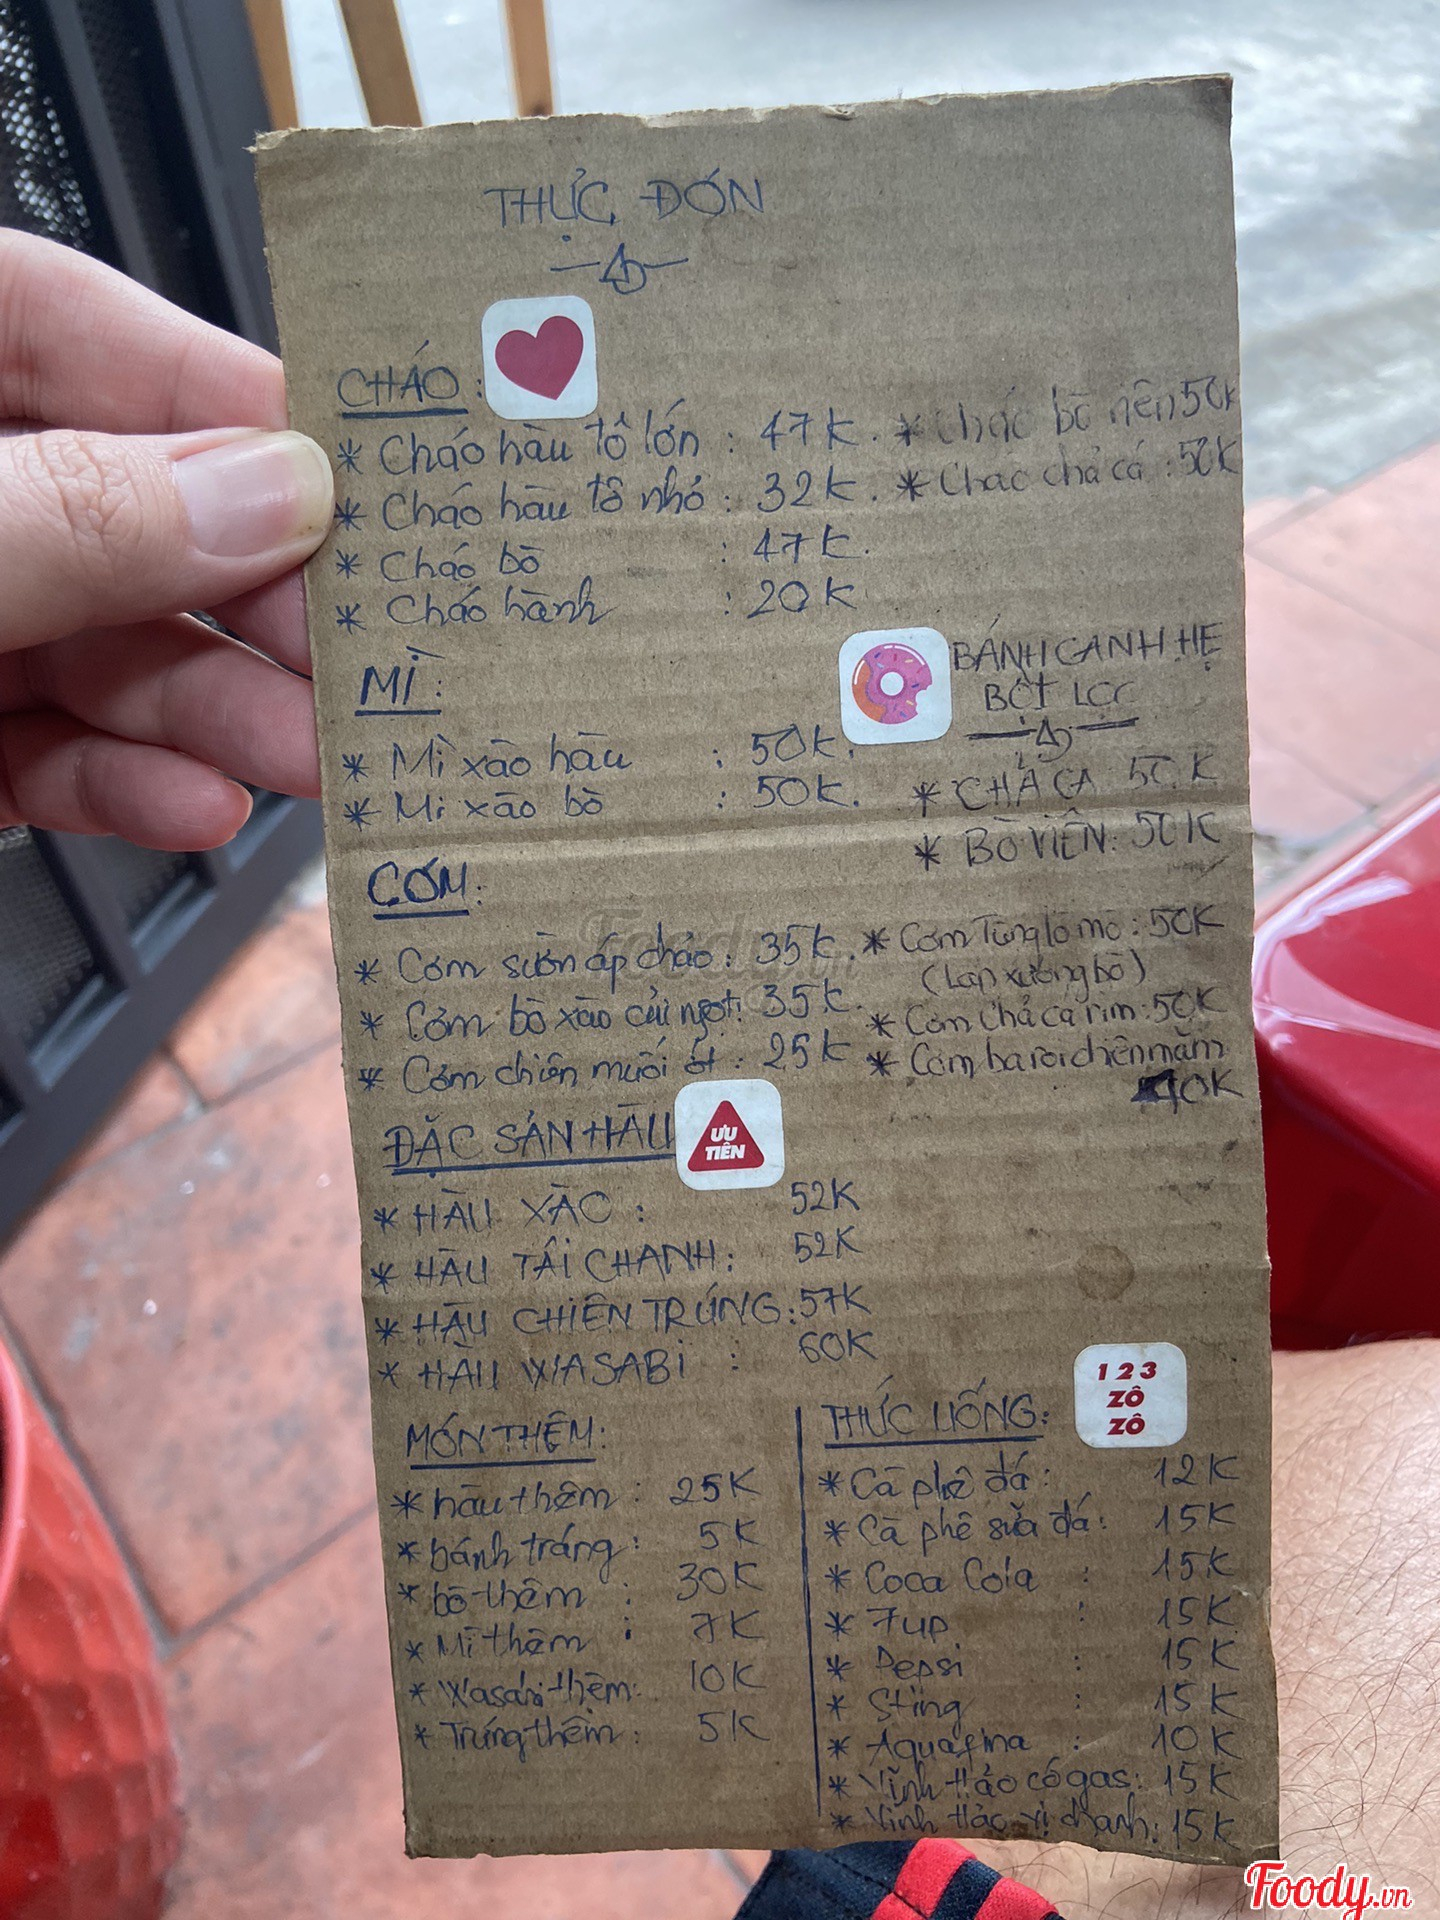 THỰC ĐƠN
CHÁO:
* Cháo hàu tô lớn : 47K.
* Cháo hàu tô nhỏ : 32K.
* Cháo bò : 47K.
* Cháo hành : 20K
* Cháo bò viên 50K
* Cháo chả cá : 50K
MÌ:
* Mì xào hàu : 50K.
* Mì xào bò : 50K.
BÁNH CANH HẸ
BỘT LỌC
* CHẢ CÁ 50K
* BÒ VIÊN: 50K
CƠM:
* Cơm sườn áp chảo : 35K.
* Cơm bò xào củi ngọt: 35K.
* Cơm chiên muối ớt : 25K
* Cơm Tùng lò mò : 50K
(Lạp xưởng bò)
* Cơm chả cá rim : 50K
* Cơm ba rọi chiên mắm
40K
ĐẶC SẢN HÀU
ƯU
TIÊN
* HÀU XÀO : 52K
* HÀU TÁI CHANH : 52K
* HÀU CHIÊN TRỨNG : 57K
* HÀU WASABI : 60K
MÓN THÊM:
* hàu thêm : 25K
* bánh tráng : 5K
* bò thêm : 30K
* Mì thêm : 7K
* Wasabi thêm: 10K
* Trứng thêm : 5K
THỨC UỐNG:
1 2 3
ZÔ
ZÔ
* Cà phê đá : 12K
* Cà phê sữa đá : 15K
* Coca Cola : 15K
* 7up : 15K
* Pepsi : 15K
* Sting : 15K
* Aquafina : 10K
* Vĩnh Hảo có gas : 15K
* Vĩnh Hảo vị chanh : 15K
Foody.vn
Foody.vn